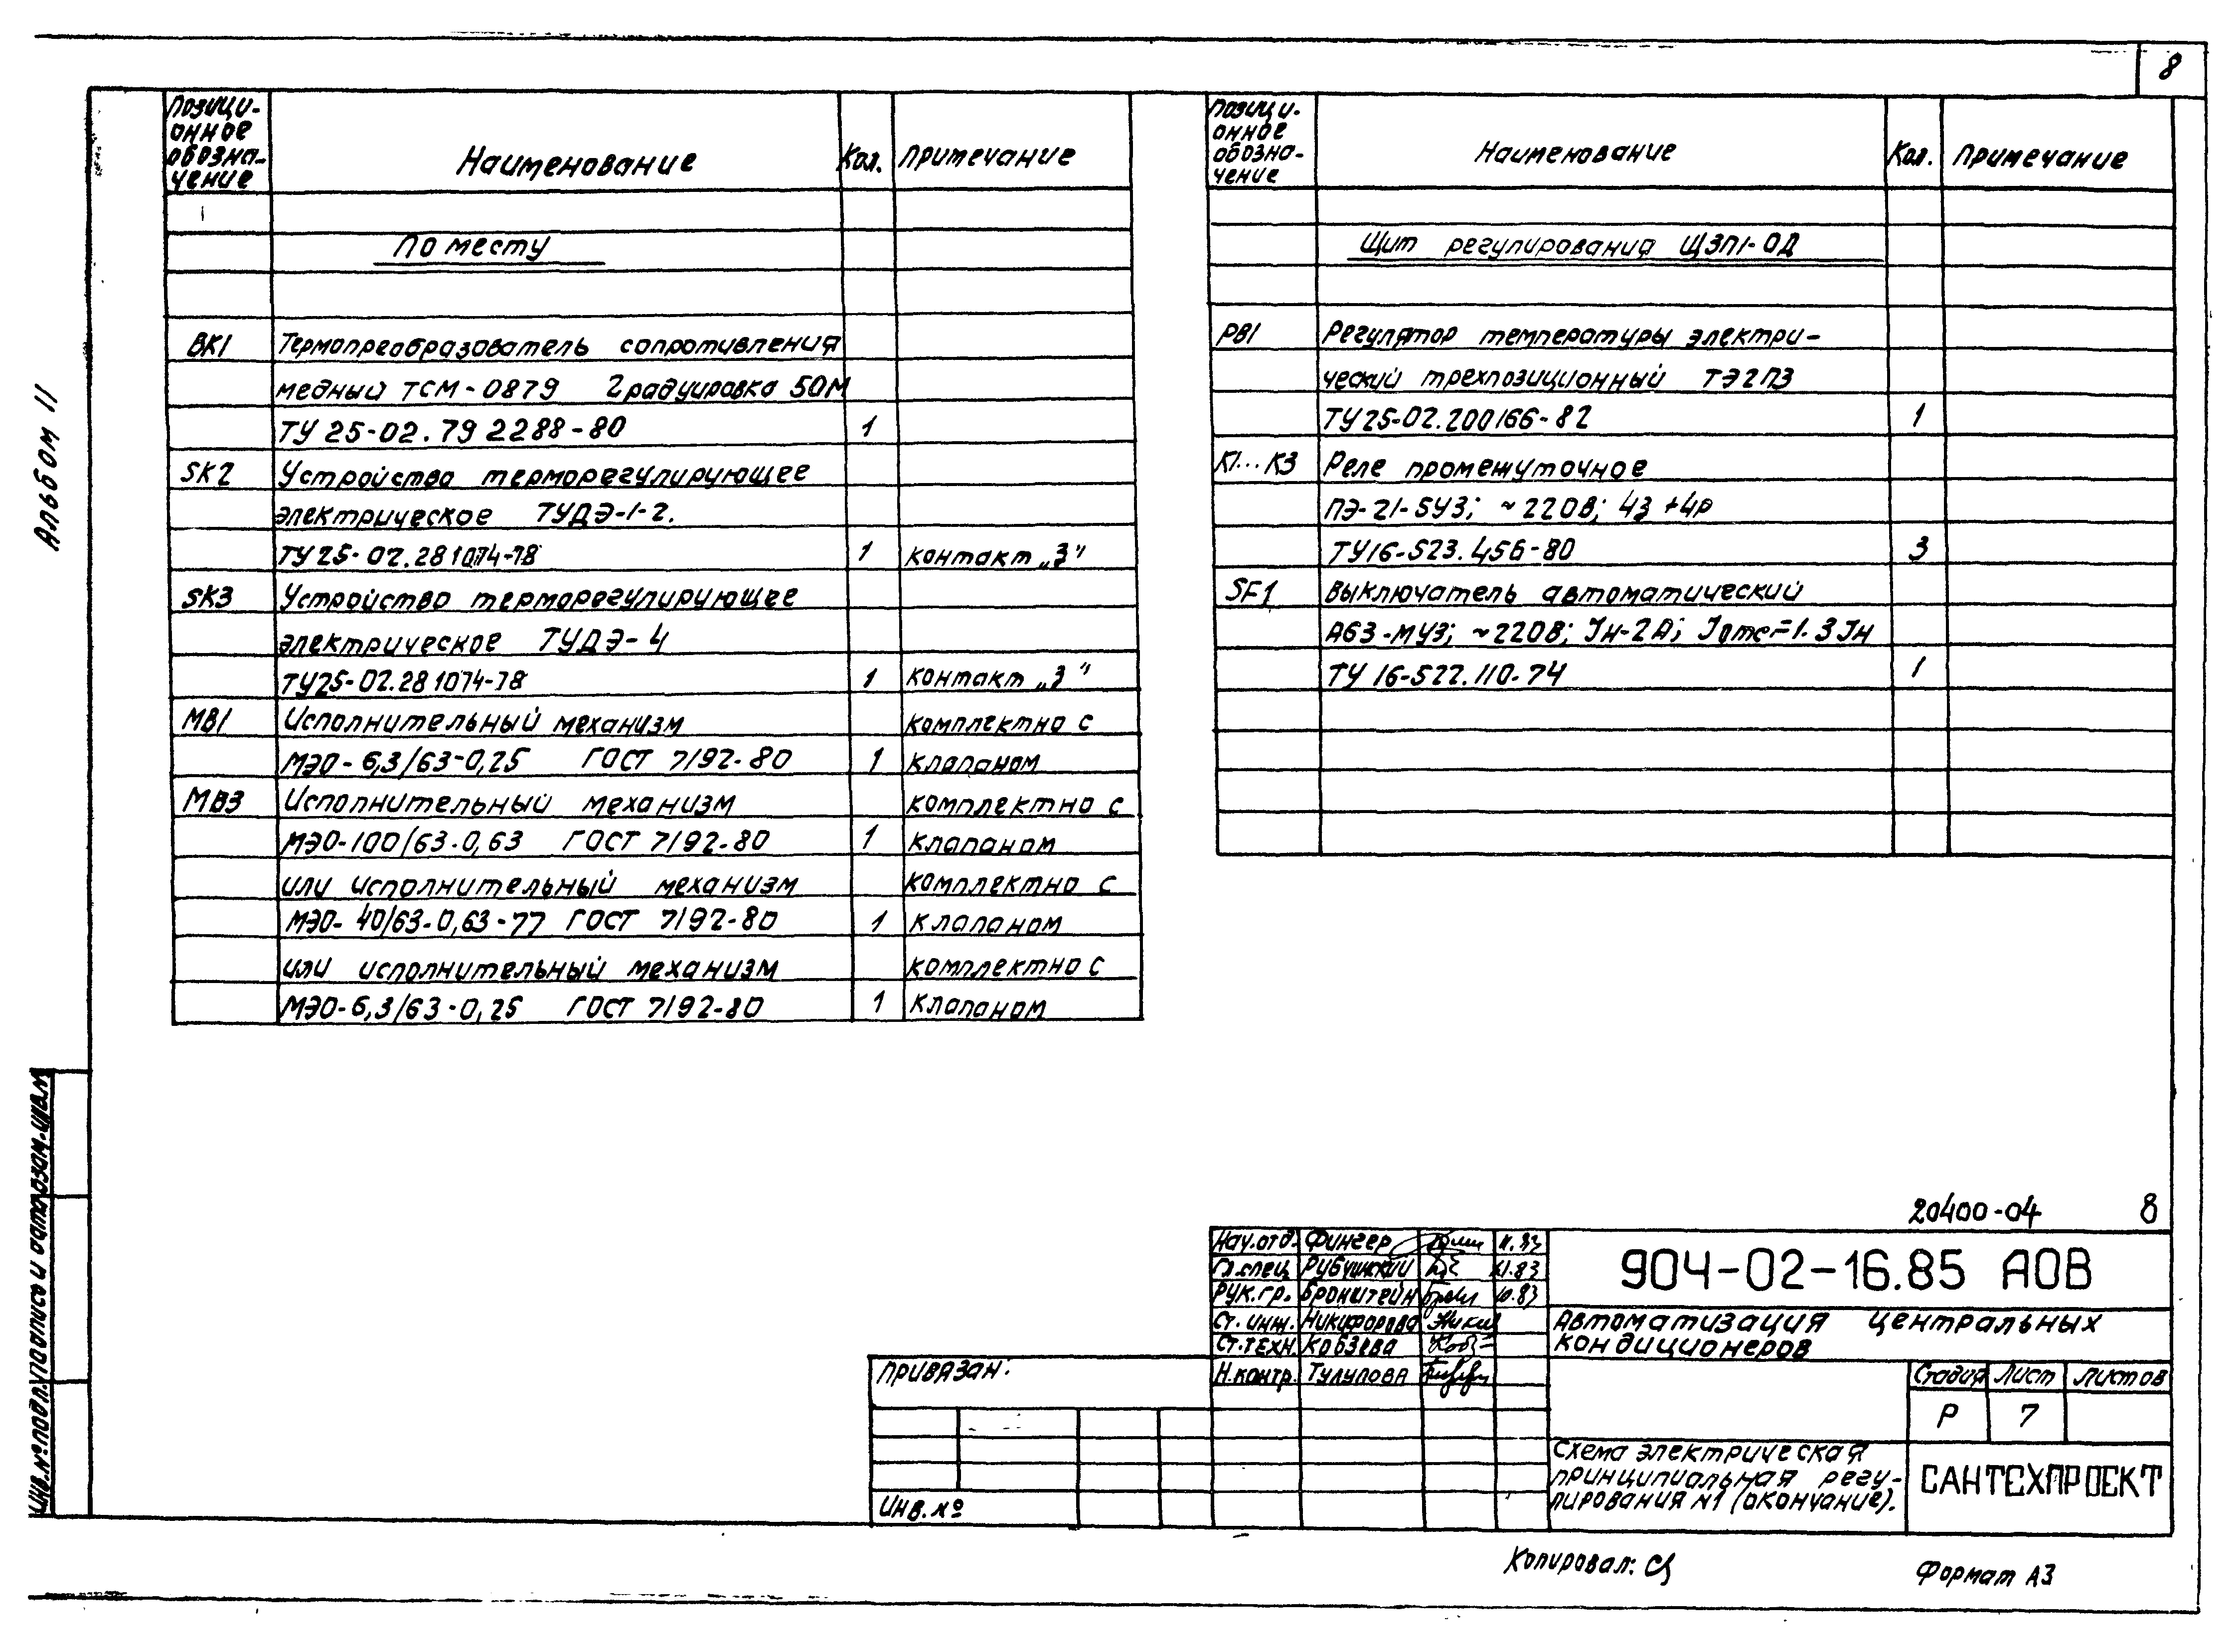 8
Альбом II
Позици-
онное
обозна-
чение
Наименование
Кол.
Примечание
По месту
ВК1 Термопреобразователь сопротивления
медный ТСМ-0879 Градуировка 50М
ТУ 25-02.79 2288-80 1
SK2 Устройство терморегулирующее
электрическое ТУДЭ-1-2.
ТУ25-02.281074-78 1 контакт „З"
SK3 Устройство терморегулирующее
электрическое ТУДЭ-4
ТУ25-02.281074-78 1 контакт „З"
МВ1 Исполнительный механизм комплектно с
МЭО-6,3/63-0,25 ГОСТ 7192-80 1 клапаном
МВ3 Исполнительный механизм комплектно с
МЭО-100/63-0,63 ГОСТ 7192-80 1 клапаном
или исполнительный механизм комплектно с
МЭО-40/63-0,63-77 ГОСТ 7192-80 1 клапаном
или исполнительный механизм комплектно с
МЭО-6,3/63-0,25 ГОСТ 7192-80 1 клапаном
Позици-
онное
обозна-
чение
Наименование
Кол.
Примечание
Щит регулирования ЩЗП1-ОД
РВ1 Регулятор температуры электри-
ческий трехпозиционный ТЭ2П3
ТУ25-02.200166-82 1
К1...К3 Реле промежуточное
ПЭ-21-5У3; ~220В; 4з+4р
ТУ16-523.456-80 3
SF1 Выключатель автоматический
А63-МУ3; ~220В; Iн-2А; Iотс=1.3Iн
ТУ 16-522.110-74 1
20400-04 8
Нач.отд. Фингер 11.83
Гл.спец. Рубчинский XI.83
Рук.гр. Бронштейн 10.83
Ст.инж. Никифорова
Ст.техн. Кобзева
Н.контр. Тулупова
904-02-16.85 АОВ
Автоматизация центральных
кондиционеров
Стадия Лист Листов
Р 7
Схема электрическая
принципиальная регу-
лирования №1 (окончание).
САНТЕХПРОЕКТ
Привязан:
Инв.№
Инв.№ подл. Подпись и дата Взам.инв.№
Копировал:
Формат А3